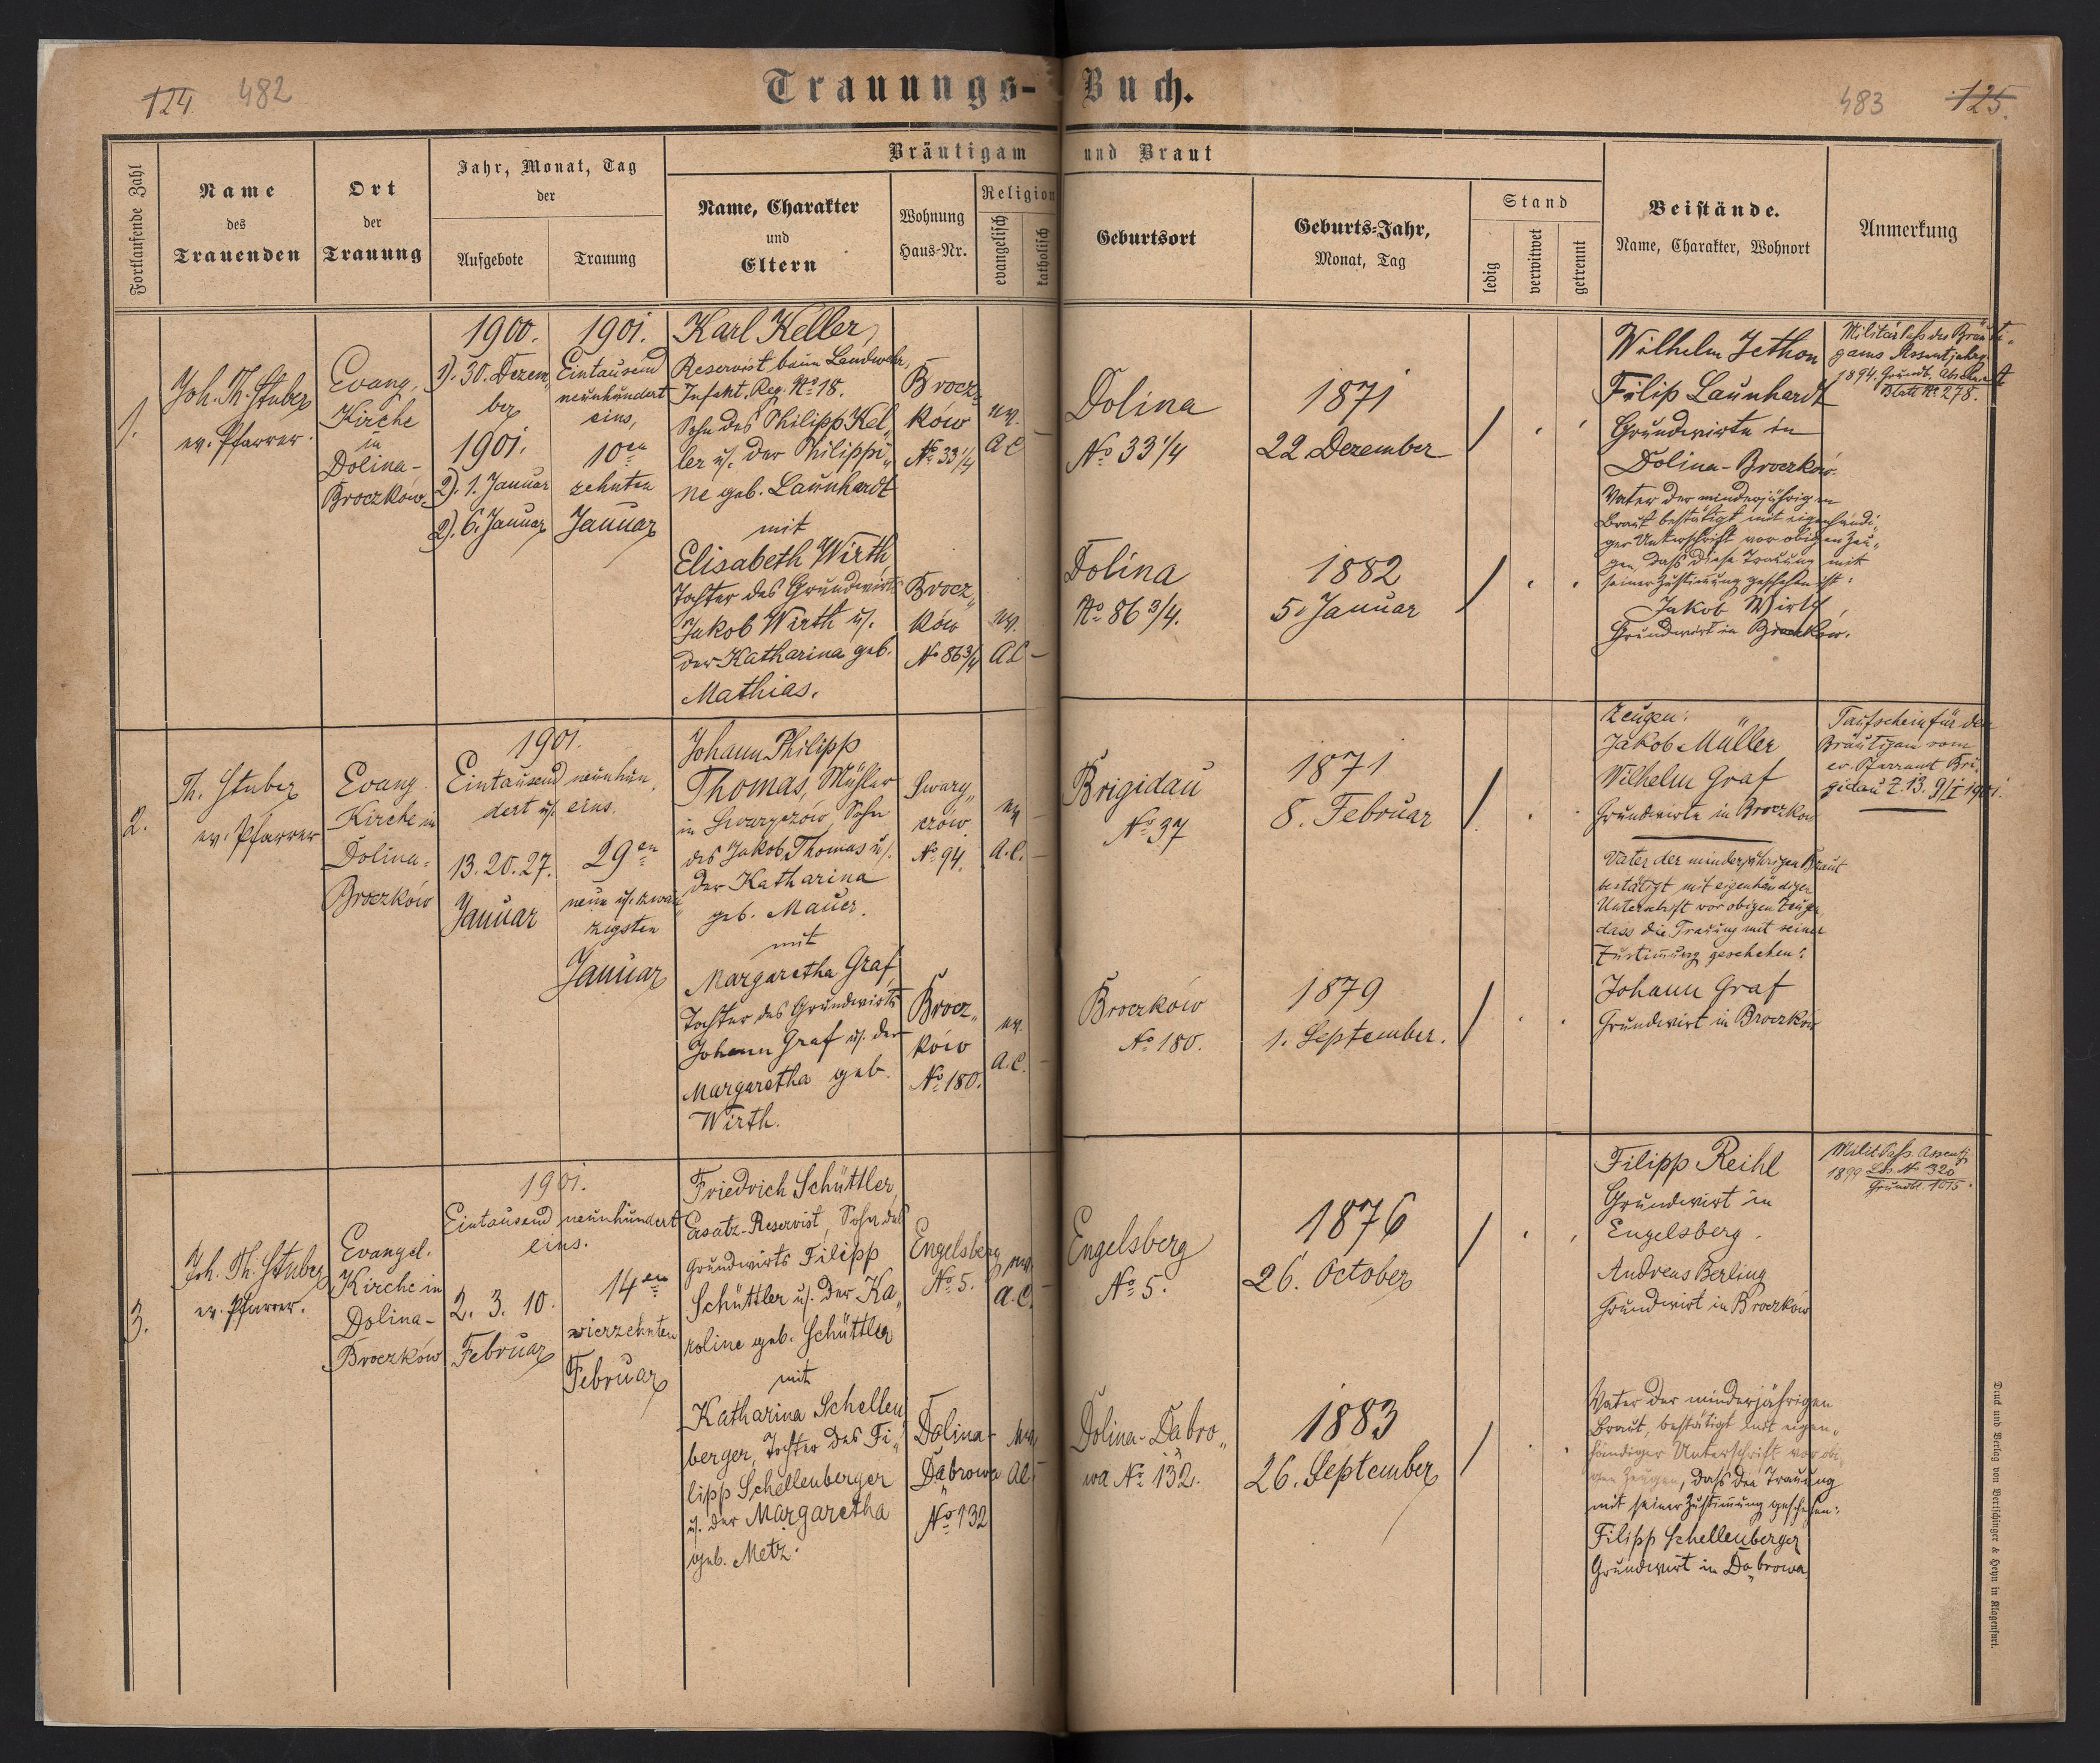 124. 482
Trauungs-Buch.
483 125.
Fortlaufende Zahl
Name
des
Trauenden
Ort
der
Trauung
Jahr, Monat, Tag
der
Aufgebote
Trauung
Bräutigam und Braut
Name, Charakter
und
Eltern
Wohnung
Haus-Nr.
Religion
evangelisch
katholisch
Geburtsort
Geburts-Jahr,
Monat, Tag
Stand
ledig
verwitwet
getrennt
Beistände.
Name, Charakter, Wohnort
Anmerkung
1.
Joh. Th. Stuber
ev. Pfarrer.
Evang.
Kirche
in
Dolina-
Broczków.
1900.
1). 30. Dezem
ber
1901.
2). 1. Januar
2). 6. Januar
1901.
Eintausend
neunhundert
eins,
10en
zehnten
Januar
Karl Keller,
Reservist beim Landwehr,
Infant. Reg. No 18.
Sohn des Philipp Kel„
ler u. der Philippi„
ne geb. Launhardt
mit
Elisabeth Wirth,
Tochter des Grundwirts
Jakob Wirth u.
der Katharina geb.
Mathias.
Brocz„
ków
No 33 1/4
Brocz„
ków
No 86 3/4
ev.
A C -
ev.
A C -
Dolina
No 33 1/4
Dolina
No 86 3/4.
1871
22 Dezember
1882
5. Januar
Wilhelm Jethon
Filip Launhardt
Grundwirte in
Dolina-Broczków.
Vater der minderjährigen
Braut bestätigt mit eigenhändi„
ger Unterschrift vor obigen Zeu„
gen, daß diese Trauung mit
seiner Zustimmung geschehen ist:
Jakob Wirth,
Grundwirt in Broczków.
Militär Paß des Bräuti„
gams Assentjahrg.
1894. Grundb. Abschnitt
Blatt No 278.
2.
Th. Stuber
ev. Pfarrer
Evang.
Kirche in
Dolina-
Broczków
1901.
Eintausend neunhun„
dert u. eins.
13. 20. 27.
Januar
29en
neun u. zwan
zigsten
Januar
Johann Philipp
Thomas, Müller
in Swaryczów, Sohn
des Jakob Thomas u.
der Katharina
geb. Mauer.
mit
Margaretha Graf,
Tochter des Grundwirts
Johann Graf u. der
Margaretha geb.
Wirth.
Swary„
czów.
No 94.
Brocz„
ków
No 180.
ev.
A. C. -
ev.
A. C. -
Brigidau
No 37
Broczków
No 180.
1871
8. Februar
1879
1. September.
Zeugen:
Jakob Müller
Wilhelm Graf
Grundwirte in Broczkow
Vater der minderjährigen Braut
bestätigt mit eigenhändiger
Unterschrift vor obigen Zeugen
dass die Trauung mit seiner
Zustimmung geschehen:
Johann Graf
Grundwirt in Broczków
Taufschein für den
Bräutigam vom
ev. Pfarramt Bri„
gidau Z. 13. 9/I 1901.
3.
Joh. Th. Stuber
ev. Pfarrer.
Evangel.
Kirche in
Dolina-
Broczków
1901.
Eintausend neunhundert
eins.
2. 3. 10.
Februar
14en
vierzehnten
Februar
Friedrich Schüttler,
Ersatz-Reservist, Sohn des
Grundwirts Filipp
Schüttler u. der Ka„
roline geb. Schüttler
mit
Katharina Schellen
berger, Tochter des Fi„
lipp Schellenberger
u. der Margaretha
geb. Metz.
Engelsberg
No 5.
Dolina-
Dąbrowa
No 132
ev.
A. C. -
ev.
A C -
Engelsberg
No 5.
Dolina-Dąbro„
wa No 132.
1876
26. October
1883
26. September
Filipp Reihl
Grundwirt in
Engelsberg.
Andreas Berling
Grundwirt in Broczków
Vater der minderjährigen
Braut, bestätigt mit eigen„
händiger Unterschrift vor obi„
gen Zeugen, daß die Trauung
mit seiner Zustimmung geschehen:
Filipp Schellenberger
Grundwirt in Dąbrowa
Milit Paß. Assentj.
1899 Los. No 320
Grundbl. 1015.
Druck und Verlag von Bertschinger & Heyn in Klagenfurt.